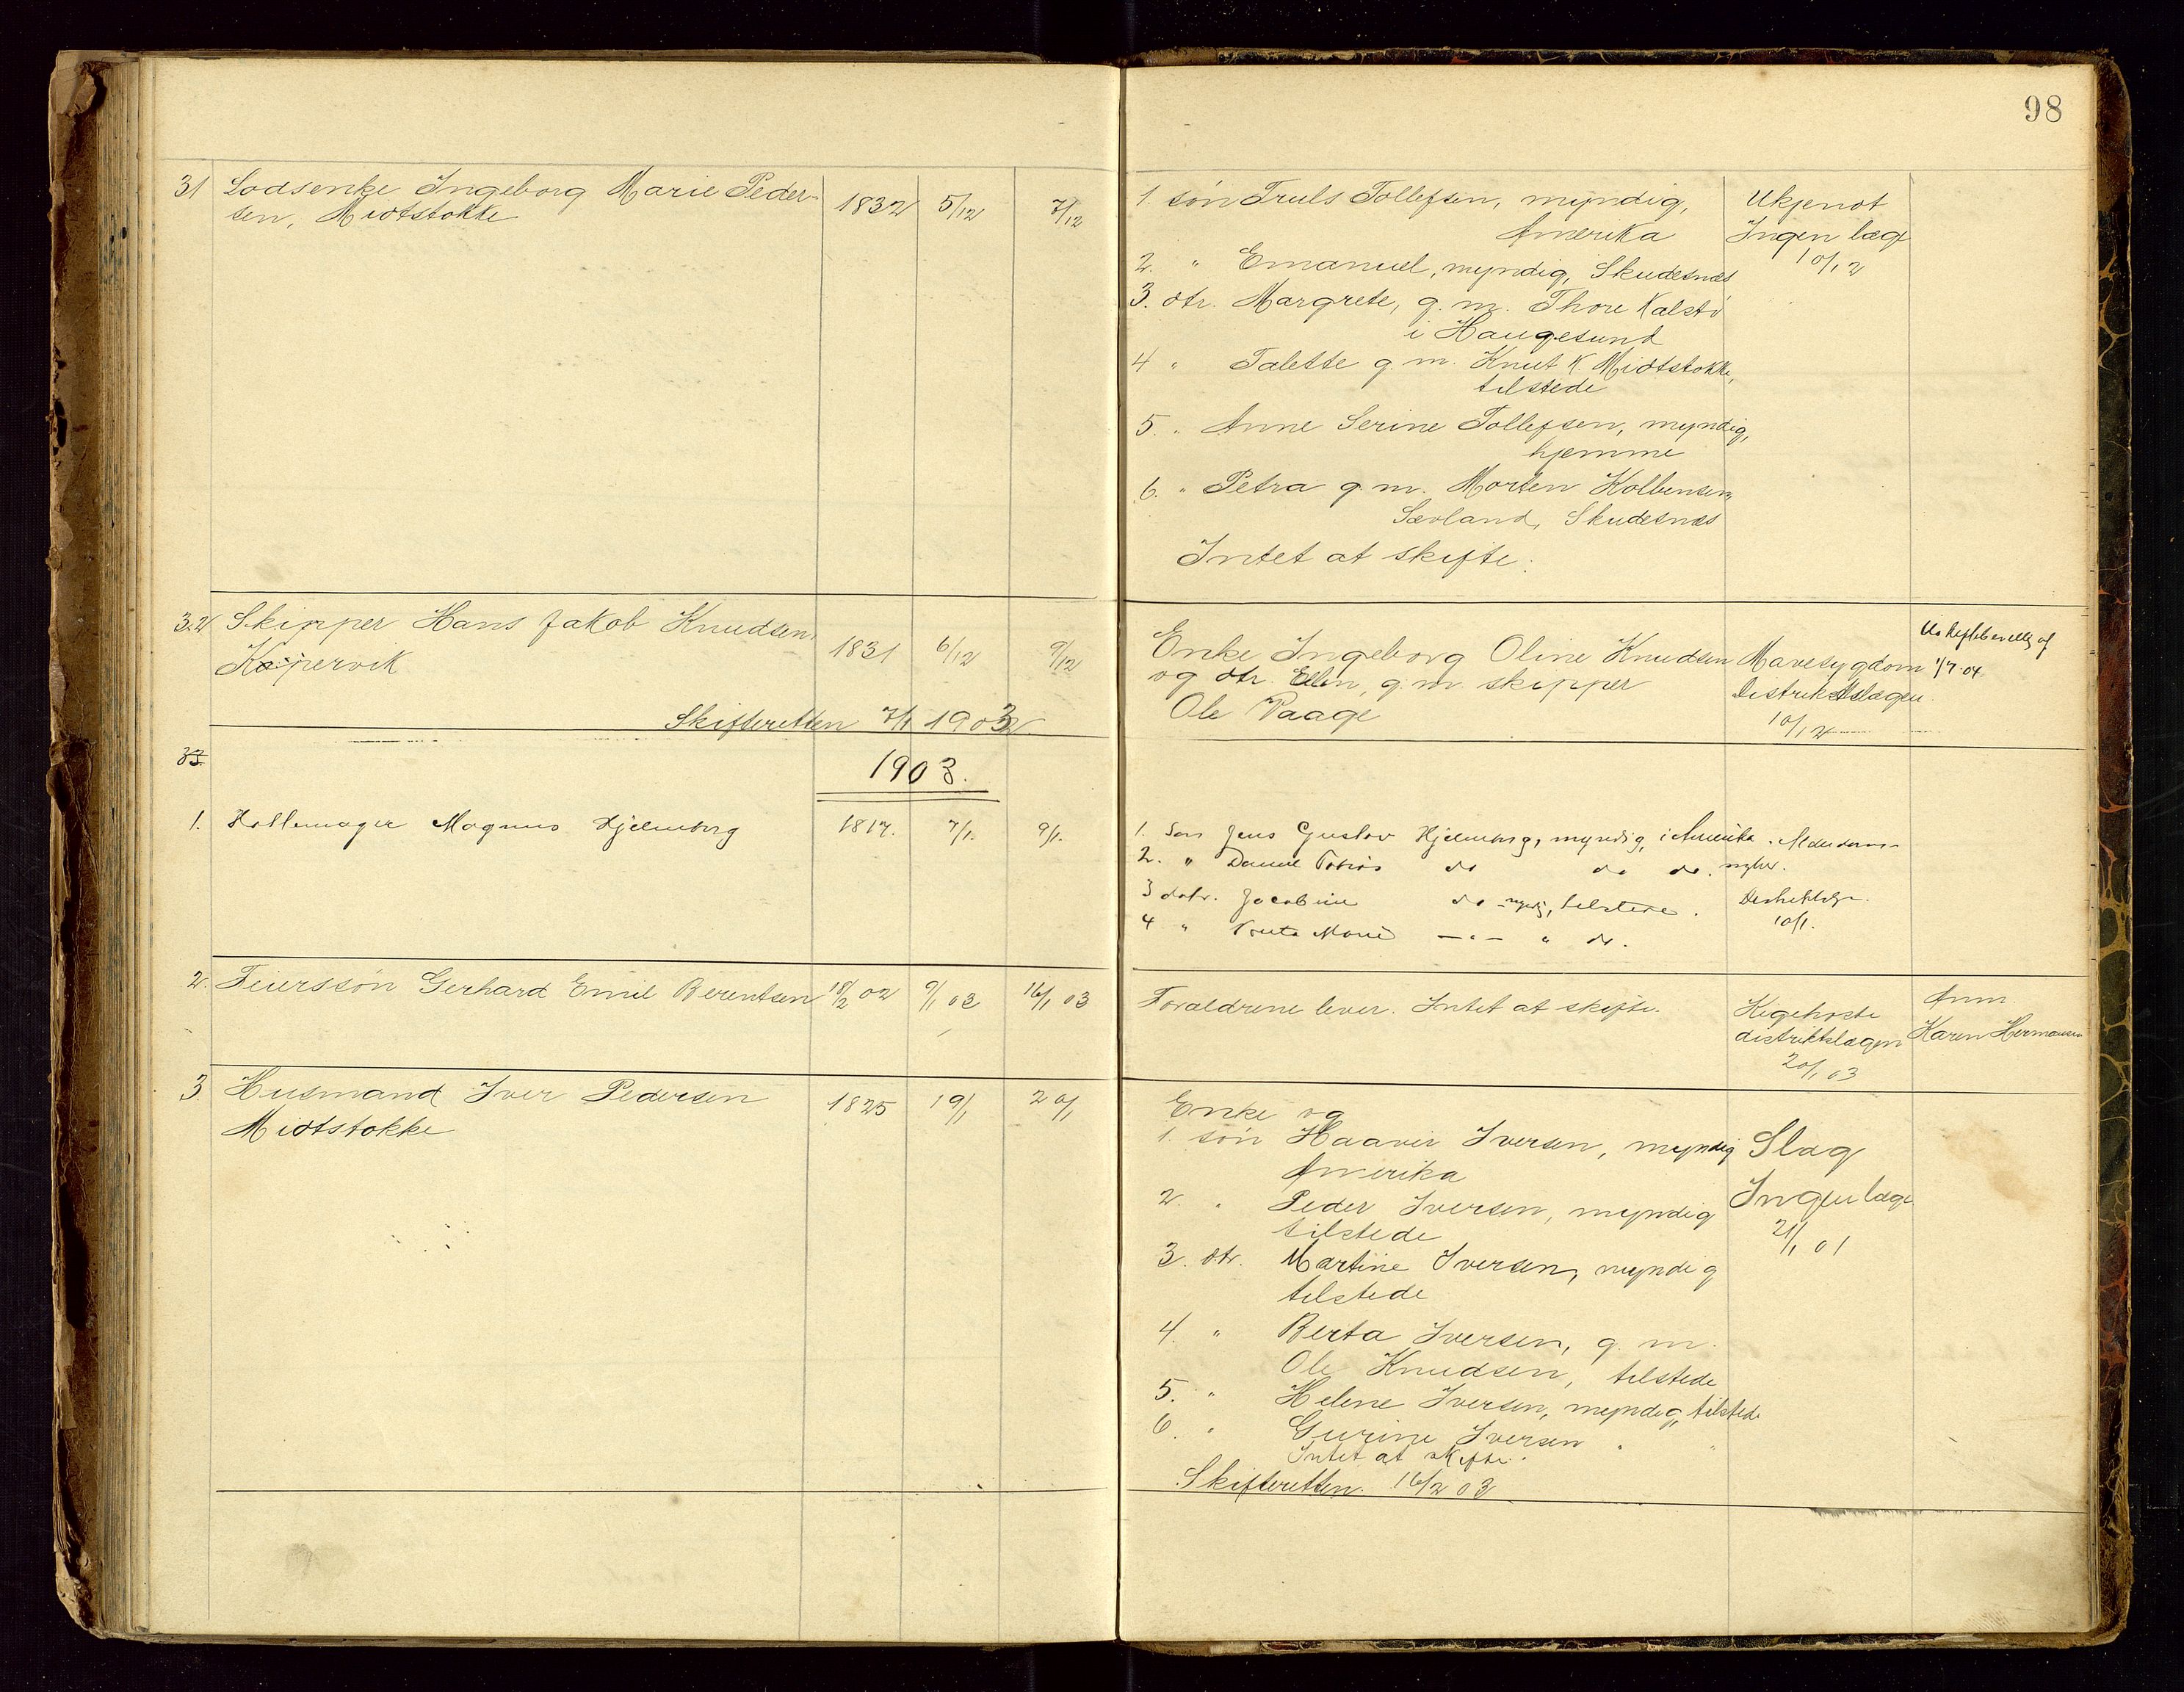 98
31 Lodsenke Ingeborg Marie Peder-
sen, Midtstokke
1832 5/12 7/12
1. søn Truls Tollefsen, myndig,
Amerika
2. " Emanuel, myndig, Skudesnæs
3. dtr. Margrete, g. m. Thore Kalstø
i Haugesund
4 " Talette g. m. Knut K. Midtstokke,
tilstede
5. " Anne Serine Tollefsen, myndig,
hjemme
6. " Petra g. m. Morten Kolbensen,
Sævland, Skudesnæs
Intet at skifte.
Ukjendt
Ingen læge
10/12
32 Skipper Hans Jakob Knudsen,
Kopervik
1831 6/12 9/12
Skifteretten 7/1 1903
Enke Ingeborg Oline Knudsen
og dtr. Ellen, g. m. skipper
Ole Vaage
Mavesygdom
Distriktslægen
10/12
1/7.04
33.
1903.
1. Magnus Hjelmborg
1817. 7/1. 9/1.
1. Søn Jens Gustav Hjelmborg, myndig, i Amerika.
2. " Daniel Tobias do do do.
3 datr. Jacobine do myndig, tilstede.
4 " Marie " do.
10/1.
2. Feierssøn Gerhard Emil Berentsen
18/2 02 9/1 03 16/1 03
Forældrene lever. Intet at skifte.
Kigehoste
distriktslægen
20/1 03
Anm
Karen Hermansen
3. Husmand Iver Pedersen
Midtstokke
1825 19/1 20/1
Enke og
1. søn Haaver Iversen, myndig
Amerika
2. " Peder Iversen, myndig
tilstede
3. dtr. Martine Iversen, myndig
tilstede
4. " Berta Iversen, g. m.
Ole Knudsen, tilstede
5. " Helene Iversen, myndig, tilstede
6. " Gurine Iversen " "
Intet at skifte.
Skifteretten 16/2 03
Slag
Ingen læge
21/1 01